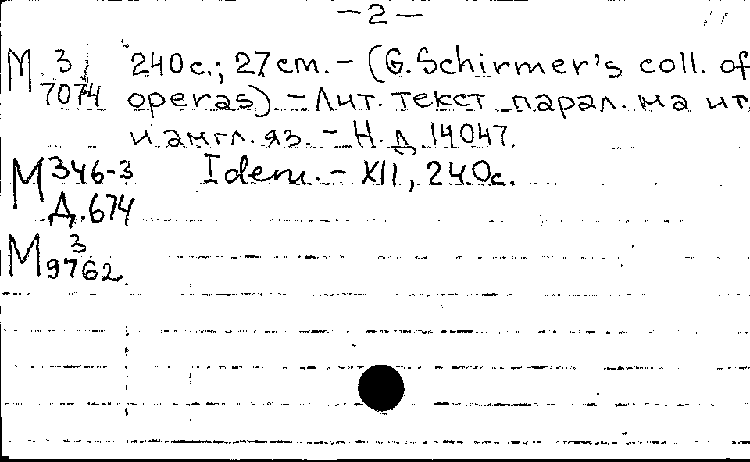 — 2 —
М 3/7074 240 с.; 27 cm. – (G. Schirmer's coll. of
operas). – Лит. текст парал. на ит.
и англ. яз. – Н. д. 14047.
М 346-3 Idem. – XII, 240 с.
Д. 674
М 3
9762